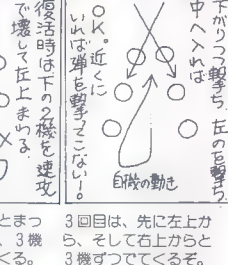 下がりつつ撃ち、左のを撃ち、
中へ入れば
OK。近くに
いれば弾を撃ってこない!
復活時は下の2機を速攻
で壊して左上まわる。
自機の動き
とまっ
、3機
くる。
3回目は、先に左上か
ら、そして右上からと
3機ずつでてくるぞ。